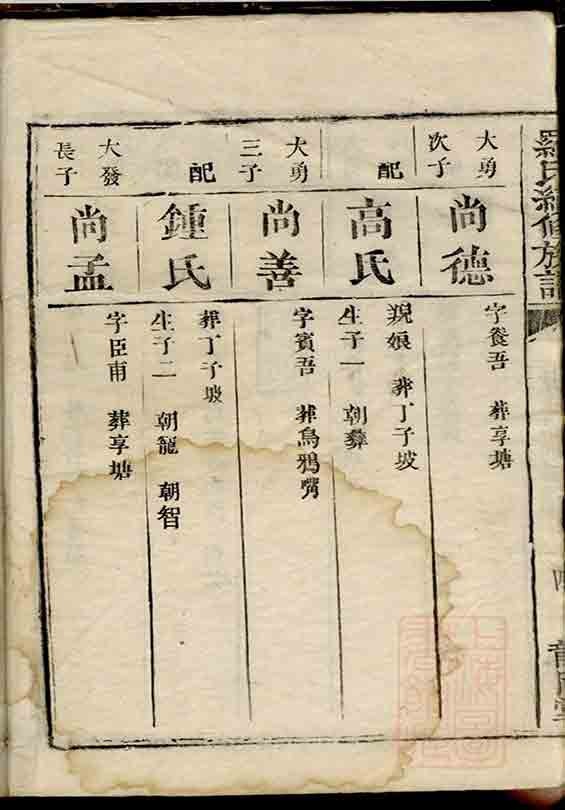 羅氏續修族譜
大勇
次子
尚德
字養吾 葬享塘
配
高氏
葬丁子坡
生子一 朝彝
大勇
三子
尚善
字賓吾 葬烏鴉嘴
配
鍾氏
葬丁子坡
生子二 朝龍 朝智
大發
長子
尚孟
字臣甫 葬享塘